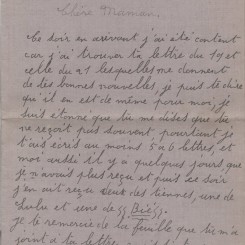 Chère Maman
Ce soir en arrivant j'ai été content
car j'ai trouver ta lettre du 19 et
celle du 21 lesquelles me donnent
de tes bonnes nouvelles, je puis te dire
qu'il en est de même pour moi, je
suis étonné que tu me dises que tu
ne reçoit pas souvent pourtant je
t'ais écris au moins 5 a 6 lettres, et
moi aussi il y a quelques jours que
je n'avais plus reçu et puis ce soir
j'en ait reçu deux des tiennes, une de
Lulu et une de
je te remercie de la feuille que tu m'a
joint à ta lettre